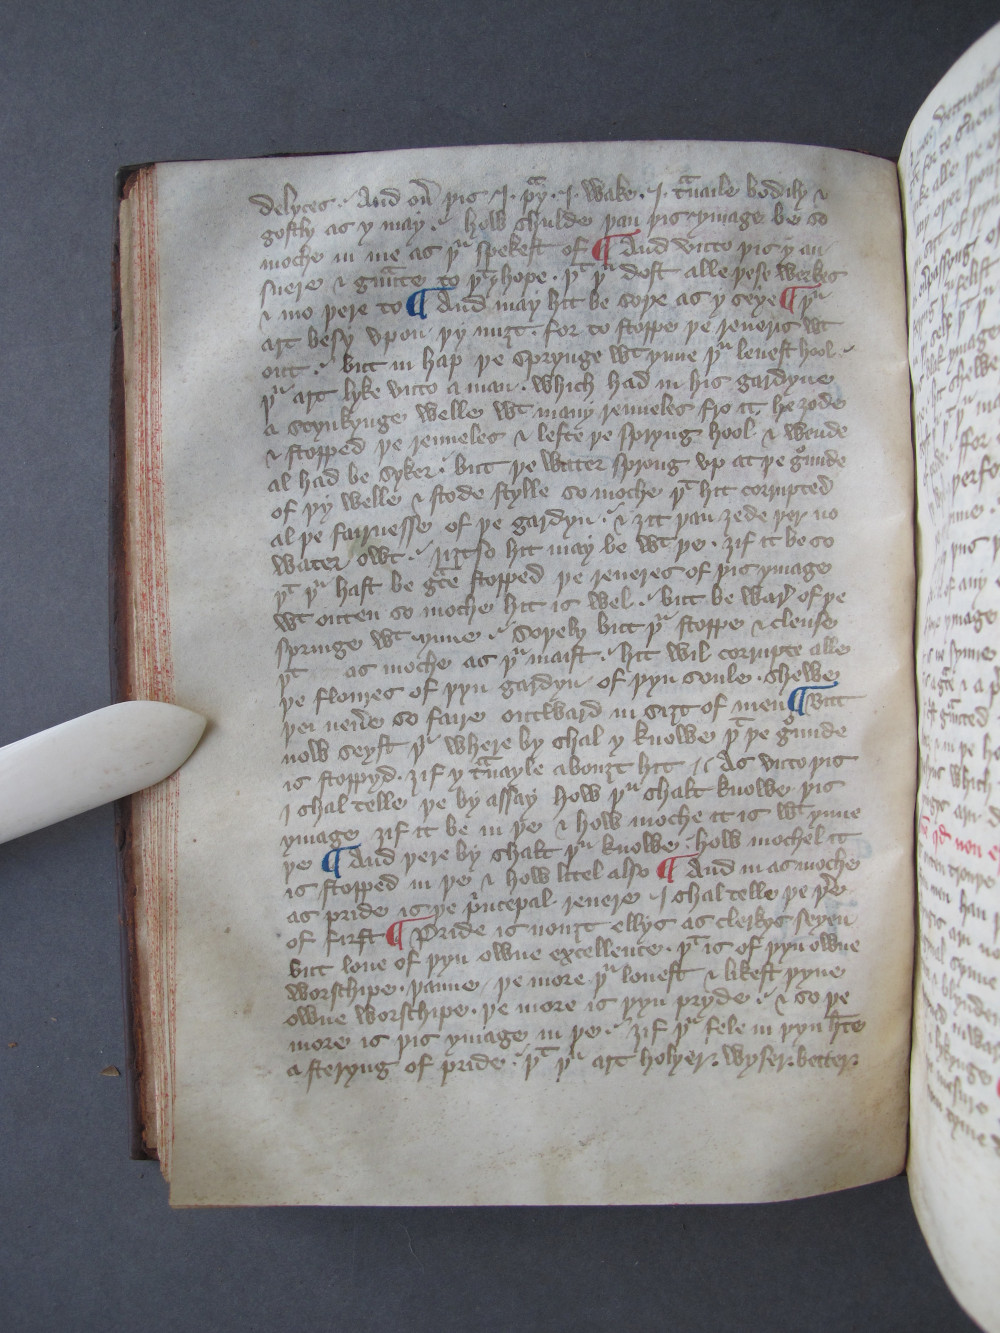 delyces · And oũ þis · I · p̃y · I · wake · I · t̃uaile bodily &
gostly as y may · how shulde þan þis ymage be so
moche in me as þu spekest of ¶ And vnto þis y an
suere & g̃unte to þe hope · þt þu dost alle þese werkes
& mo þere to ¶ And may hit be soþe as y seye ¶ þu
art besy vpon þy miȝt · for to stoppe þe reueris wt
out · but in hap þe sprynge wt ynne þu leuest hool ·
þu art lyke vnto a man · which had in his gardyne
a stynkynge welle wt many renneles fro it he ȝode
& stopped þe renneles & lefte þe spryng hool & wende
al had be syker · but þe water sprong vp at þe grunde
of þy welle & stode stylle so moche þt hit corrupted
al þe fairnesse of þe gardyn · & ȝit þan ȝede þer no
water owt · riȝt so hit may be wt þe · ȝif it be so
þt þu hast be g̃ce stopped þe reueres of þis ymage
wt outen so moche hit is wel · but be war of þe
springe wt ynne · Soþely but þu stoppe & clense
þt as moche as þu maist · hit wil corrupte alle
þe floures of þyn gardyn of þyn soule · shewe
þei neuer so faire outward in siȝt of men ¶ But
now seyst þu where by shal y knowe þt þe grunde
is stoppyd · ȝif y t̃uayle abouȝt hit · As vnto þis
I shal telle þe by assay how þu shalt knowe þis
ymage ȝif it be in þe & how moche it is wt ynne
þe ¶ And þere by shalt þu knowe · how mochel it
is stopped in þe & how litel also ¶ And in as moche
as pride is þe p̃ncepal reuere · I shal telle þe þer
of first ¶ Pride is nouȝt ellys as clerkys seyen
but loue of þyn owne excellence · þt is of þyn owne
worschipe · þanne · þe more þu louest & likest þyne
owne worschipe · þe more is þyn pryde · & so þe
more is þis ymage in þe · ȝif þu fele in þyn h̃te
a steryng of pride · þt þu art holyer · wyser · better ·